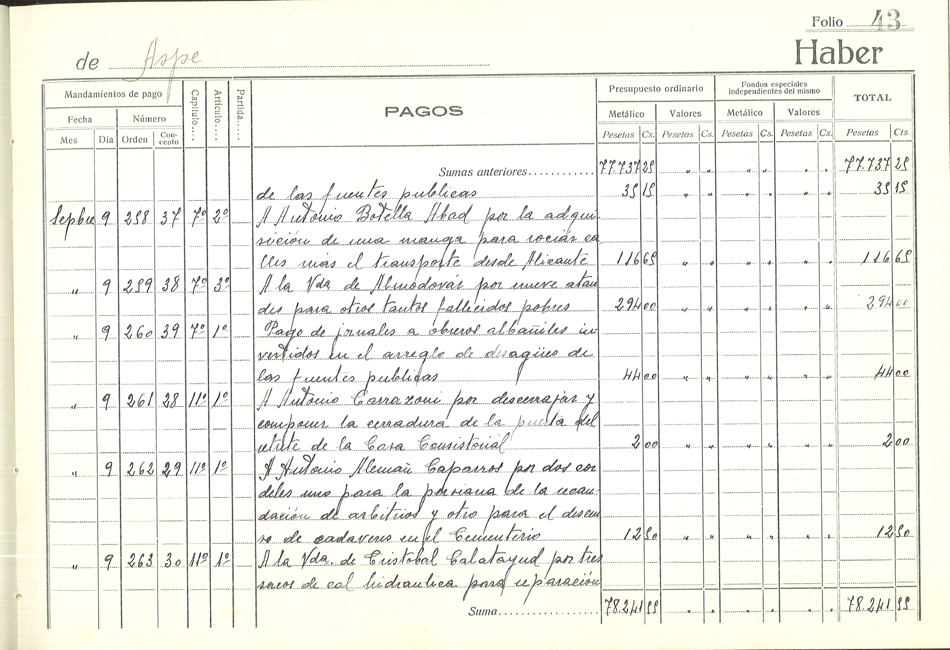 Folio 43
de Aspe
Haber
Mandamientos de pago
Capítulo....
Artículo....
Partida.....
PAGOS
Presupuesto ordinario
Fondos especiales independientes del mismo
TOTAL
Fecha Número
Metálico Valores Metálico Valores
Mes Día Orden Concepto
Pesetas Cs. Pesetas Cs. Pesetas Cs. Pesetas Cs. Pesetas Cts.
Sumas anteriores............ 77.737 25 " " " " " " 77.737 25
de las fuentes publicas 35 15 " " " " " " 35 15
Sepbre 9 258 37 7º 2º A Antonio Botella Abad por la adqui-
sición de una manga para rociar ca
lles más el transporte desde Alicante 116 65 " " " " " " 116 65
" 9 259 38 7º 3º A la Vda. de Almodovar por nueve atau
des para otros tantos fallicidos pobres 294 00 " " " " " " 294 00
" 9 260 39 7º 1º Pago de jornales a obreros albañiles in
vertidos en el arreglo de desagües de
las fuentes publicas 44 00 " " " " " " 44 00
" 9 261 28 11º 1º A Antonio Carrazoni por descerrajar y
componer la cerradura de la puerta del
retrete de la Casa Consistorial 2 00 " " " " " " 2 00
" 9 262 29 11º 1º A Antonio Alemañ Caparros por dos cor
deles uno para la persiana de la recau-
dación de arbitrios y otro para el descen
so de cadaveres en el Cementerio 12 50 " " " " " " 12 50
" 9 263 30 11º 1º A la Vda. de Cristobal Calatayud por tres
sacos de cal hidraulica para reparación
Suma................... 78.241 55 " " " " " " 78.241 55